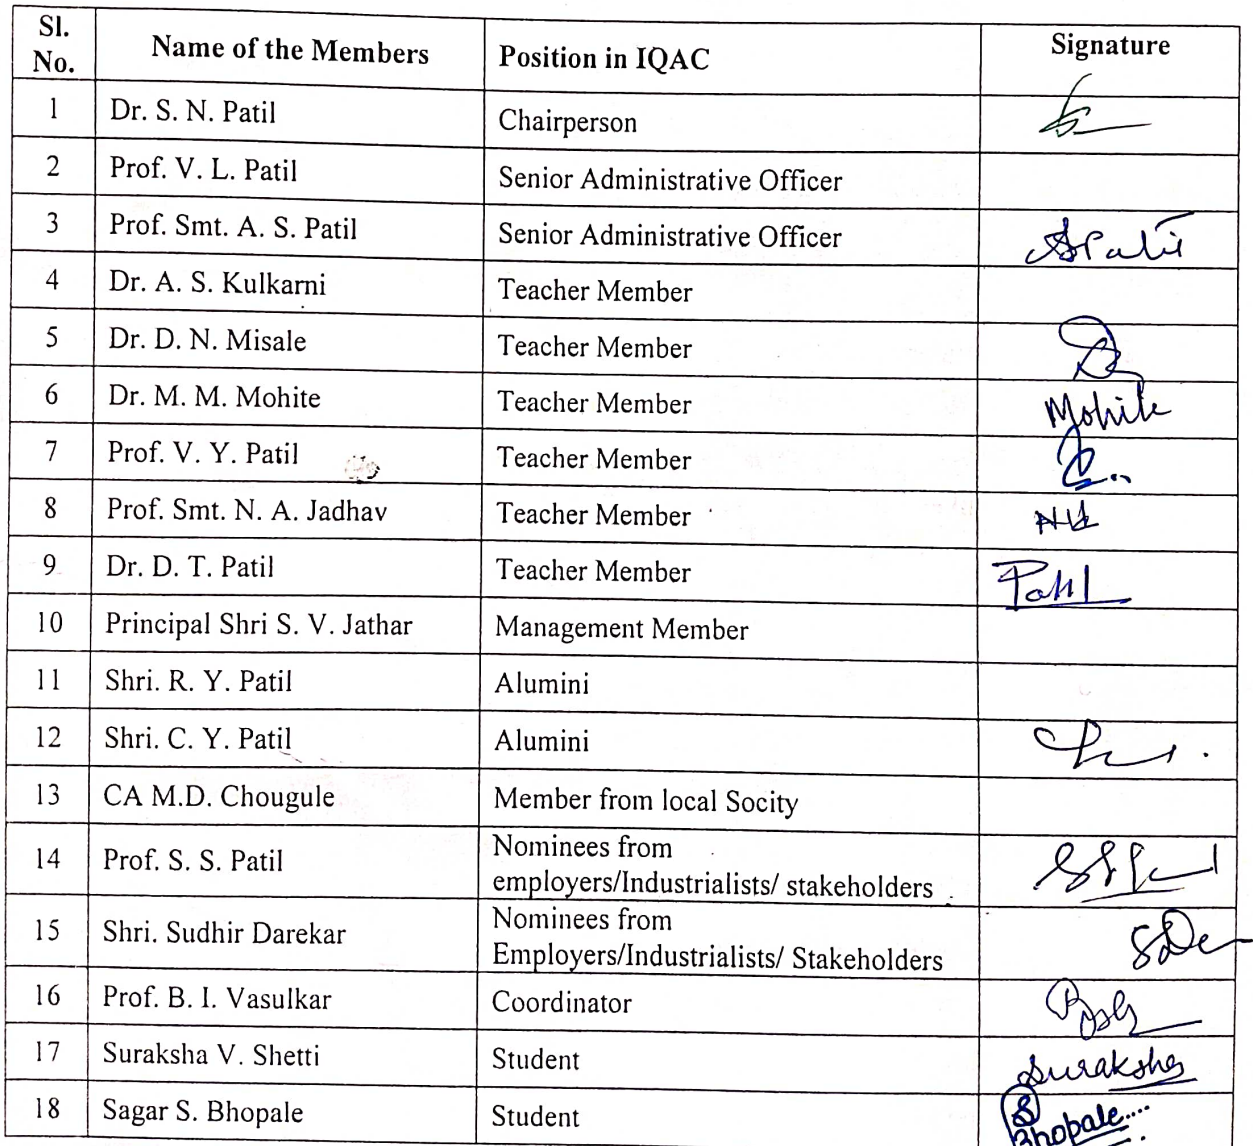 Sl. No. Name of the Members Position in IQAC Signature
1 Dr. S. N. Patil Chairperson
2 Prof. V. L. Patil Senior Administrative Officer
3 Prof. Smt. A. S. Patil Senior Administrative Officer ASPatil
4 Dr. A. S. Kulkarni Teacher Member
5 Dr. D. N. Misale Teacher Member
6 Dr. M. M. Mohite Teacher Member Mohite
7 Prof. V. Y. Patil Teacher Member
8 Prof. Smt. N. A. Jadhav Teacher Member
9 Dr. D. T. Patil Teacher Member Patil
10 Principal Shri S. V. Jathar Management Member
11 Shri. R. Y. Patil Alumini
12 Shri. C. Y. Patil Alumini
13 CA M.D. Chougule Member from local Socity
14 Prof. S. S. Patil Nominees from
employers/Industrialists/ stakeholders
15 Shri. Sudhir Darekar Nominees from
Employers/Industrialists/ Stakeholders
16 Prof. B. I. Vasulkar Coordinator
17 Suraksha V. Shetti Student Suraksha
18 Sagar S. Bhopale Student S
Bhopale....